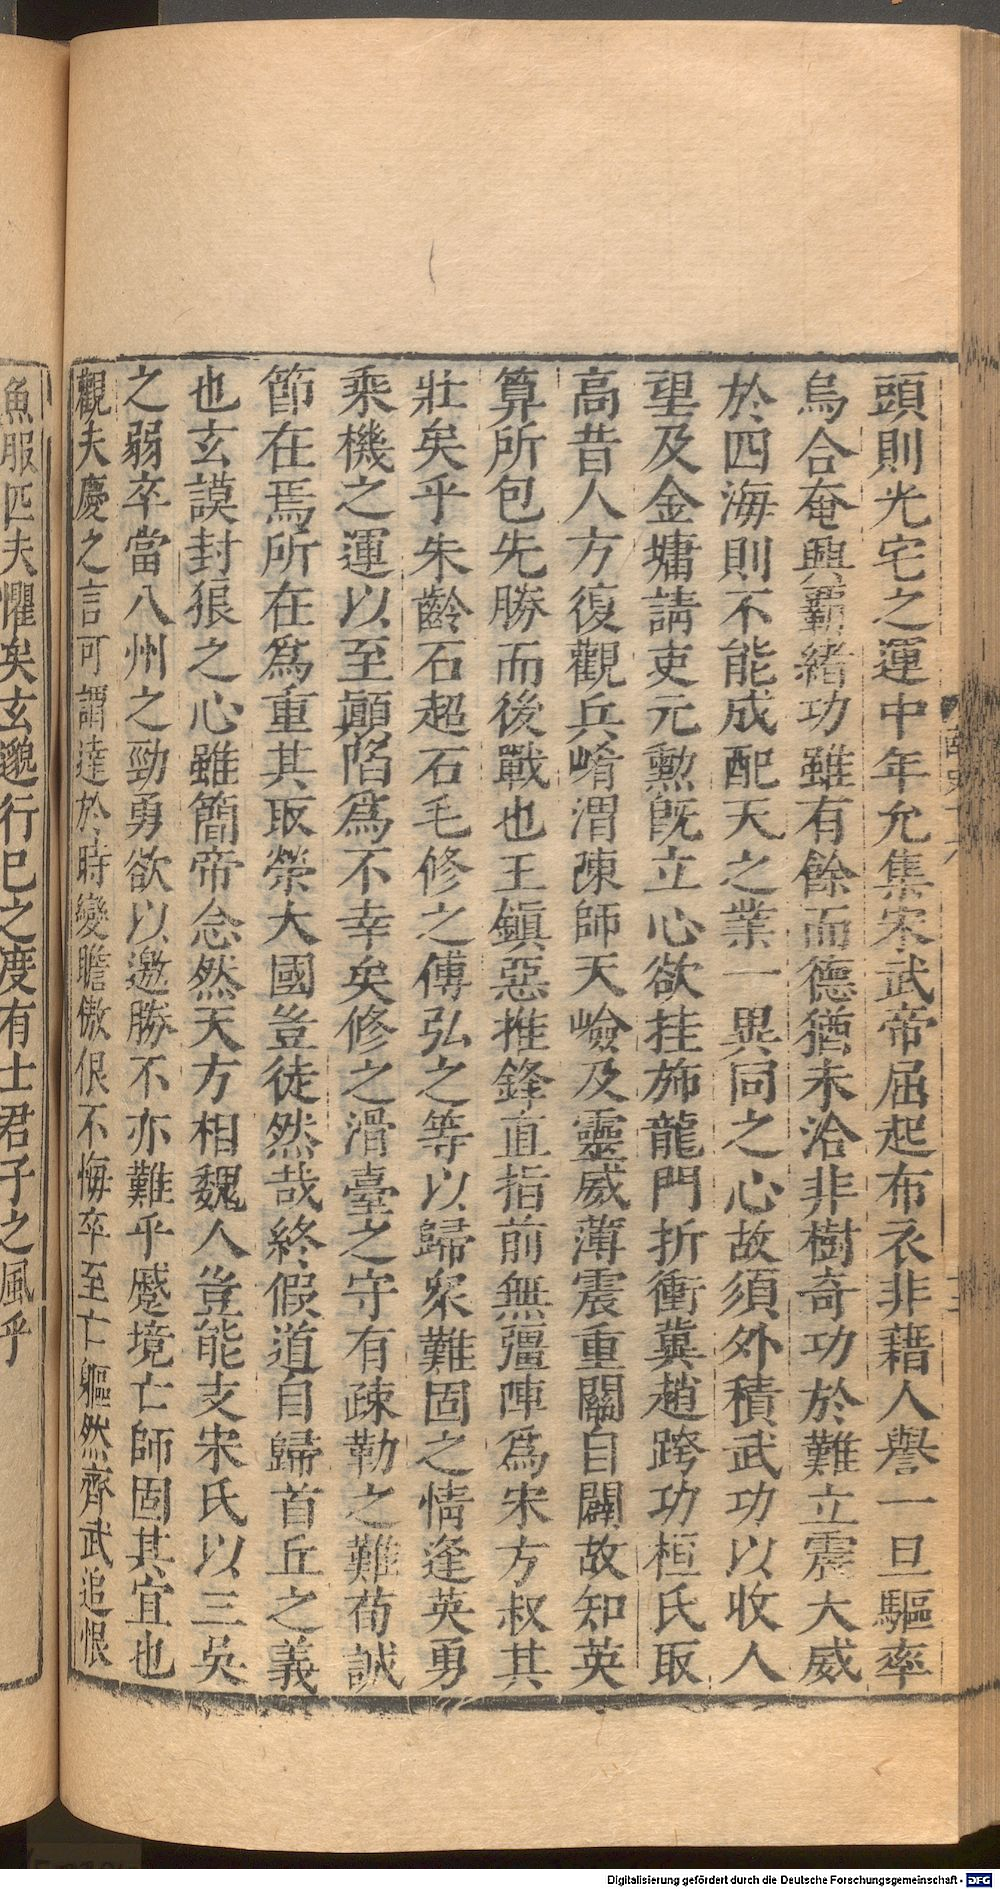 頭則光宅之運中年允集宋武帝屈起布衣非藉人譽一旦驅率
烏合奄興覇緒功雖有餘而德猶未洽非樹奇功於難立震大威
於四海則不能成配天之業一異同之心故須外積武功以收人
望及金墉請吏元勲旣立心欲挂旆龍門折衝冀趙跨功桓氏取
高昔人方復觀兵崤渭陳師天嶮及靈威薄震重關自闢故知英
算所包先勝而後戰也王鎮惡推鋒直指前無彊陣爲宋方叔其
壯矣乎朱齡石超石毛修之傅弘之等以歸衆難固之情逢英勇
乘機之運以至顛陷爲不幸矣修之滑臺之守有疎勒之難苟誠
節在焉所在爲重其取榮大國豈徒然哉終假道自歸首丘之義
也玄謨封狼之心雖簡帝念然天方相魏人豈能支宋氏以三吳
之弱卒當八州之勁勇欲以邀勝不亦難乎蹙境亡師固其宜也
觀夫慶之言可謂達於時變瞻傲佷不悔卒至亡軀然齊武追恨
魚服匹夫懼矣玄邈行巳之度有士君子之風乎
Digitalisierung gefördert durch die Deutsche Forschungsgemeinschaft - DFG